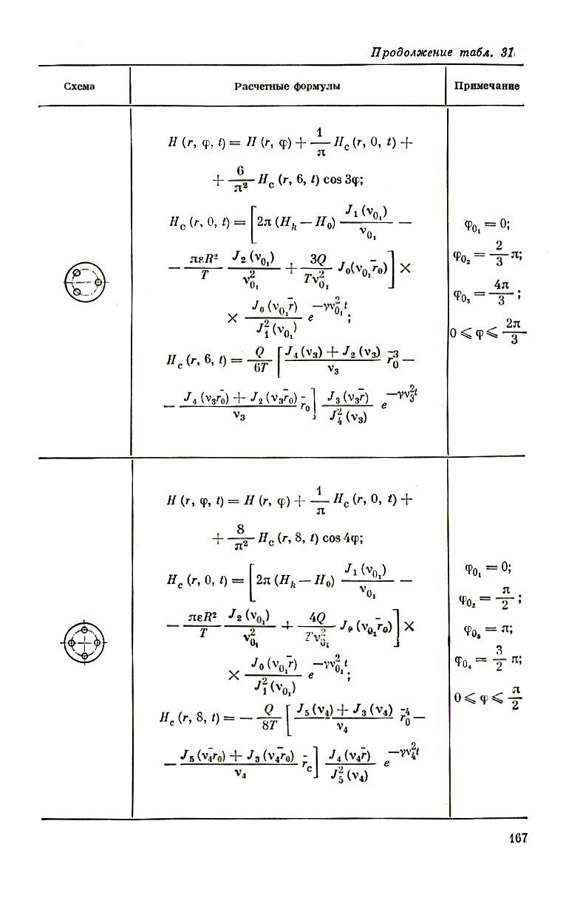 Продолжение табл. 31.
Схема Расчетные формулы Примечание
H (r, φ, t) = H (r, φ) + 1/π H_c (r, 0, t) +
+ 6/π² H_c (r, 6, t) cos 3φ;
H_c (r, 0, t) = [2π (H_k — H_0) J_1 (ν_{0_1}) / ν_{0_1} —
— πεR²/T J_2 (ν_{0_1}) / ν²_{0_1} + 3Q / Tν²_{0_1} J_0 (ν_{0_1} r̄_0)] ×
× J_0 (ν_{0_1} r̄) / J²_1 (ν_{0_1}) e^{—γν²_{0_1} t};
H_c (r, 6, t) = Q/6T [J_4 (ν_3) + J_2 (ν_3) / ν_3 r̄_0^3 —
— J_4 (ν_3 r̄_0) + J_2 (ν_3 r̄_0) / ν_3 r̄_0] J_3 (ν_3 r̄) / J²_4 (ν_3) e^{—γν²_3 t}
φ_{0_1} = 0;
φ_{0_2} = 2/3 π;
φ_{0_3} = 4π/3;
0 ⩽ φ ⩽ 2π/3
H (r, φ, t) = H (r, φ) + 1/π H_c (r, 0, t) +
+ 8/π² H_c (r, 8, t) cos 4φ;
H_c (r, 0, t) = [2π (H_k — H_0) J_1 (ν_{0_1}) / ν_{0_1} —
— πεR²/T J_2 (ν_{0_1}) / ν²_{0_1} + 4Q / Tν²_{0_1} J_0 (ν_{0_1} r̄_0)] ×
× J_0 (ν_{0_1} r̄) / J²_1 (ν_{0_1}) e^{—γν²_{0_1} t};
H_c (r, 8, t) = — Q/8T [J_5 (ν_4) + J_3 (ν_4) / ν_4 r̄_0^4 —
— J_5 (ν_4 r̄_0) + J_3 (ν_4 r̄_0) / ν_4 r̄_c] J_4 (ν_4 r̄) / J²_5 (ν_4) e^{—γν²_4 t}
φ_{0_1} = 0;
φ_{0_2} = π/2;
φ_{0_3} = π;
φ_{0_4} = 3/2 π;
0 ⩽ φ ⩽ π/2
167